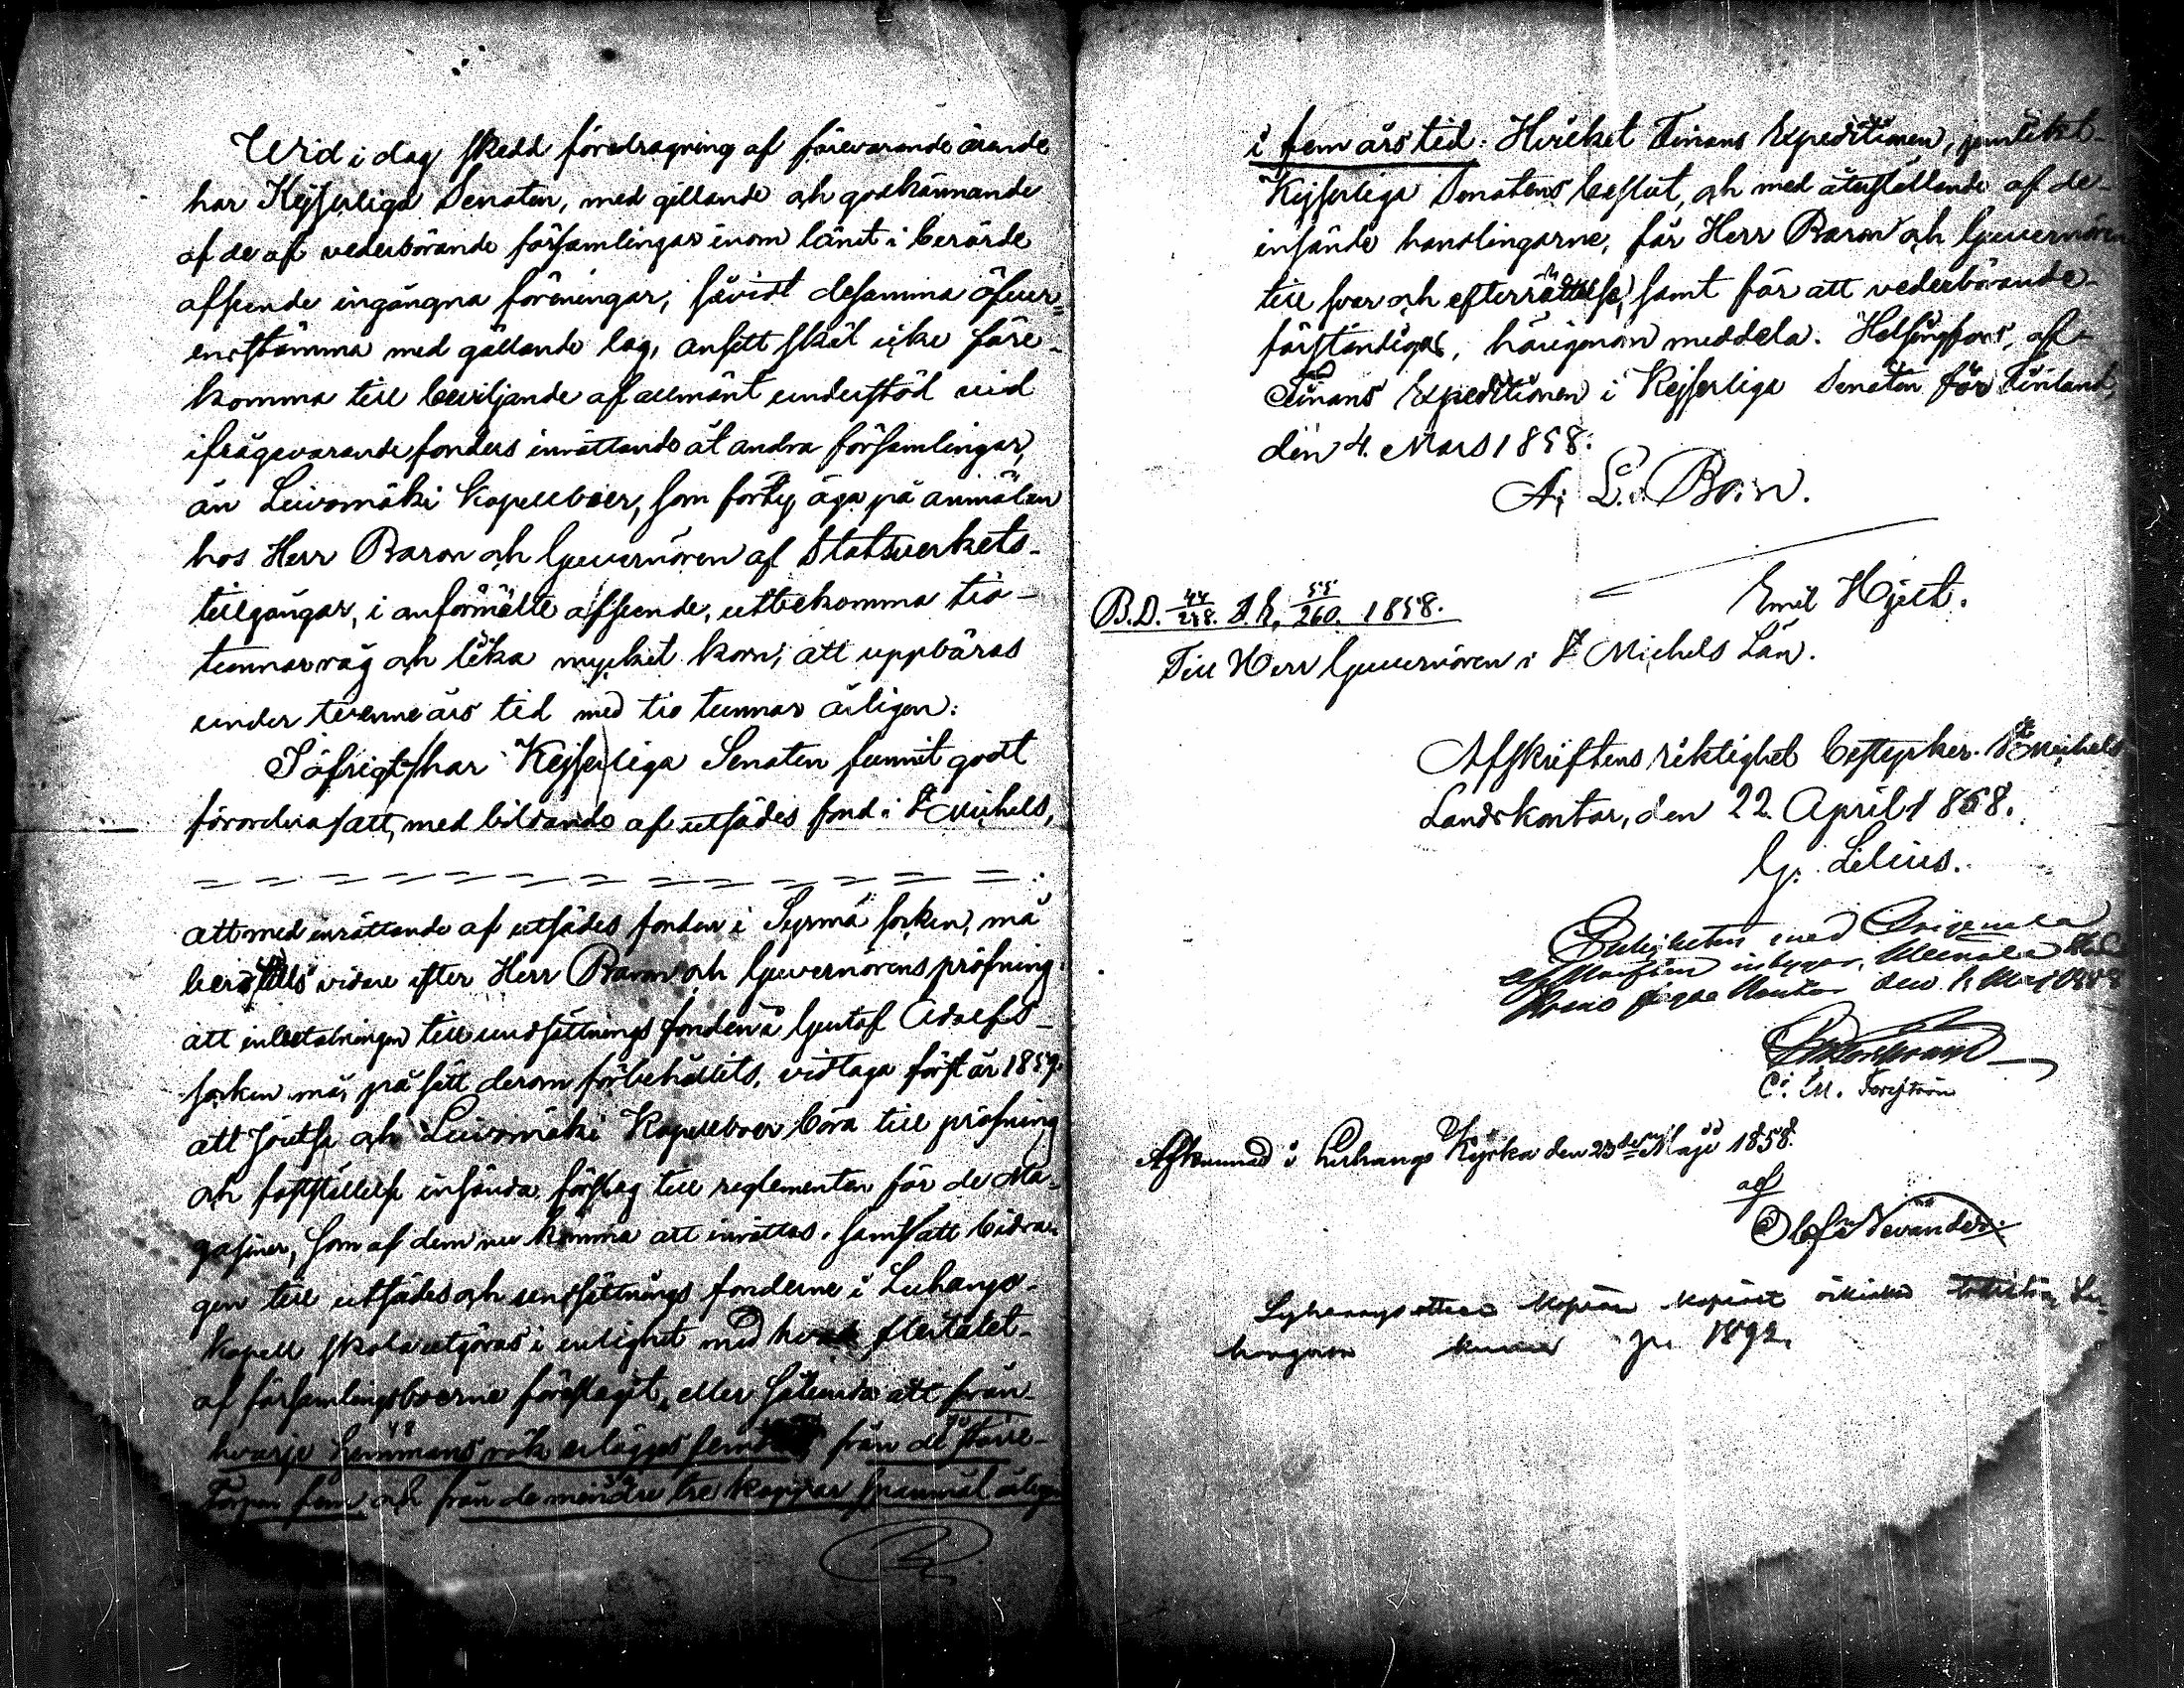 Wid i dag skedd föredragning af förevarande ärande
har Kejserliga Senaten, med gillande och godkännande
af de af vederbörande församlingar inom länet i berörde
afseende ingångna föreningar, såvidt desamma öfver=
ensstämma med gällande lag, ansett skäl icke före-
komma till beviljande af allmänt understöd vid
ifrågavarande fonders inrättande åt andra församlingar,
än Leivomäki Kapellboer, som förty äga på anmälan
hos Herr Baron och Guvernören af Statsverkets-
tillgångar, i anförmälte afseende, uttbekomma tio-
tunnor råg och lika mycket korn, att uppbäras
under tvenne års tid med tio tunnor årligen:
I öfrigt har Kejserliga Senaten funnit godt
förordna att, med bildande af utsädes fond i St Michels,
att med inrättande af utsädes fonden i Sysmä socken, må
bero tills vidare efter Herr Baron och Guvernörens pröfning
att inbetalningen till undsättnings fonden i Gustaf Adolfs-
socken må, på sätt derom förbehållits, vidtaga först år 1859.
att Joutsa och Leivomäki Kapellboer böra till pröfning
och fastställelse insända förslag till reglementen för de Ma-
gasiner, som af dem nu komma att inrättas. samt att bidra-
gen till utsädes och undsättnings fonderne i Luhango-
Kapell skola utgöras i enlighet med hvad flertalet-
af församlingsboerne föreslagit, eller sålunda att från-
hvarje hemmans rök erlägges fem från de större-
Torpen fem och från de mindre tre kappar spannmål årligen
i fem års tid: Hvilket Finans Expeditionen, jemlikt-
Kejserliga Senatens beslut, och med återställande af de-
insände handlingarne, får Herr Baron och Guvernören
till svar och efterrättelse, samt för att vederbörande-
förständigas, härigenom meddela. Helsingfors, af-
Finans Expeditionen i Kejserliga Senaten för Finland,
den 4. Mars 1858:
A. L. Born.
Emil Hjelt.
B.D. 44/248. A. h. 55/260. 1858.
Till Herr Guvernören i St Michels Län.
Afskriftens riktighet bestyrker. St Michels
Landskontor, den 22. April 1858.
G. Lilius.
med
den 1858
C. M. Forsström
Afkunnad i Luhango Kyrka den 23 dje Maji 1858.
af
Olof Nevander.
kopian
1892.